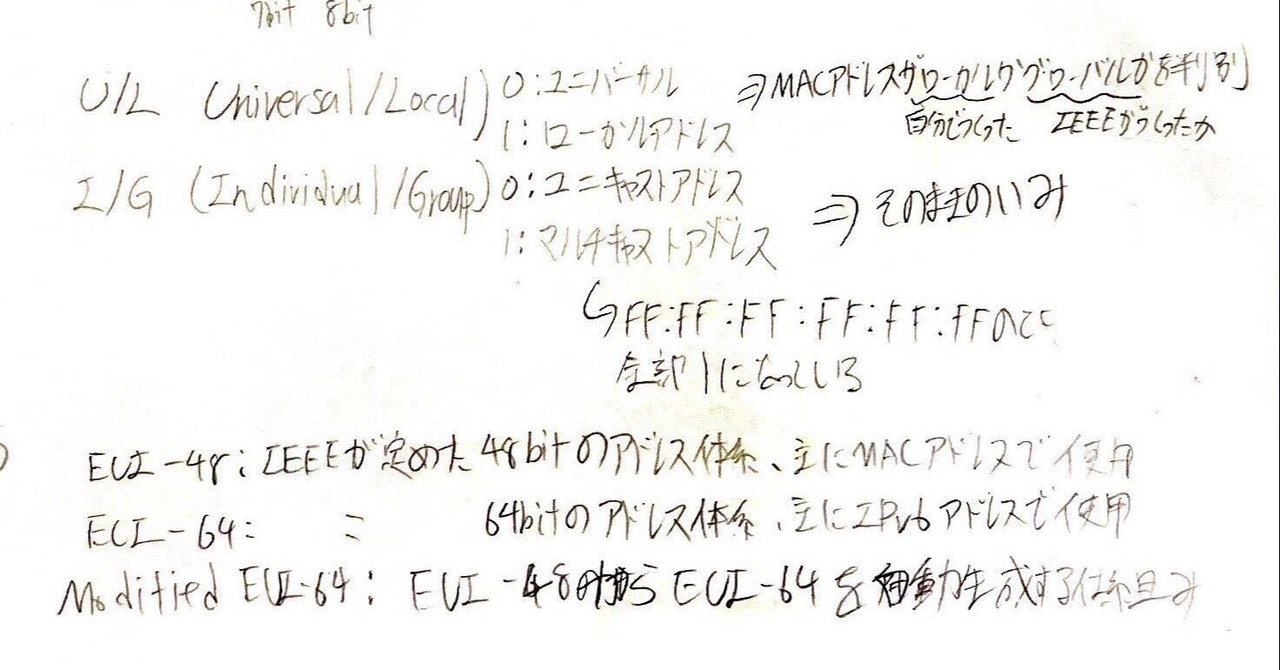 7bit 8bit
U/L Universal/Local) 0:ユニバーサル ⇒MACアドレスがローカルかグローバルかを判別
1:ローカルアドレス 自分でつくった IEEEがつくったか
I/G (Individual/Group) 0:ユニキャストアドレス ⇒そのままのいみ
1:マルチキャストアドレス
↳FF:FF:FF:FF:FF:FFのこと
全部1になっている
EUI-48:IEEEが定めた48bitのアドレス体系、主にMACアドレスで使用
EUI-64: 〃 64bitのアドレス体系、主にIPv6アドレスで使用
Modified EUI-64: EUI-48からEUI-64を自動生成する仕組み